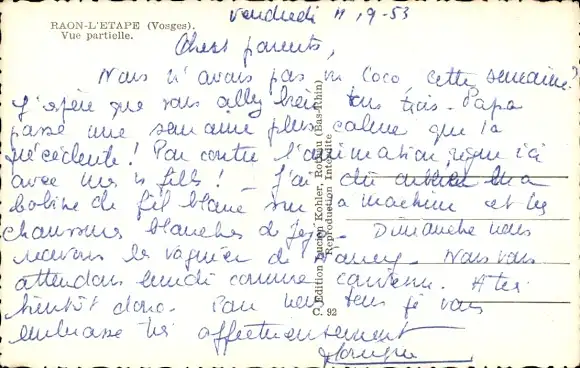 RAON-L'ETAPE (Vosges).
Vue partielle.
Vendredi 11.9-53
Chers parents,
Nous n'avons pas vu Coco, cette semaine?
J'espère que vous allez bien tous trois. Papa
passé une semaine plus calme que la
précédente! Par contre l'animation règne ici
avec mes 4 filles! J'ai dû oublier ma
bobine de fil blanc sur la machine et les
chaussons blanches de Jojo. Dimanche nous
recevons les de Nancy. Nous vous
attendons lundi comme convenu. A très
bientôt donc. Pour nous tous je vous
embrasse très affectueusement
C. Edition Lucien Kohler, Rothau (Bas-Rhin)
Reproduction Interdite
92